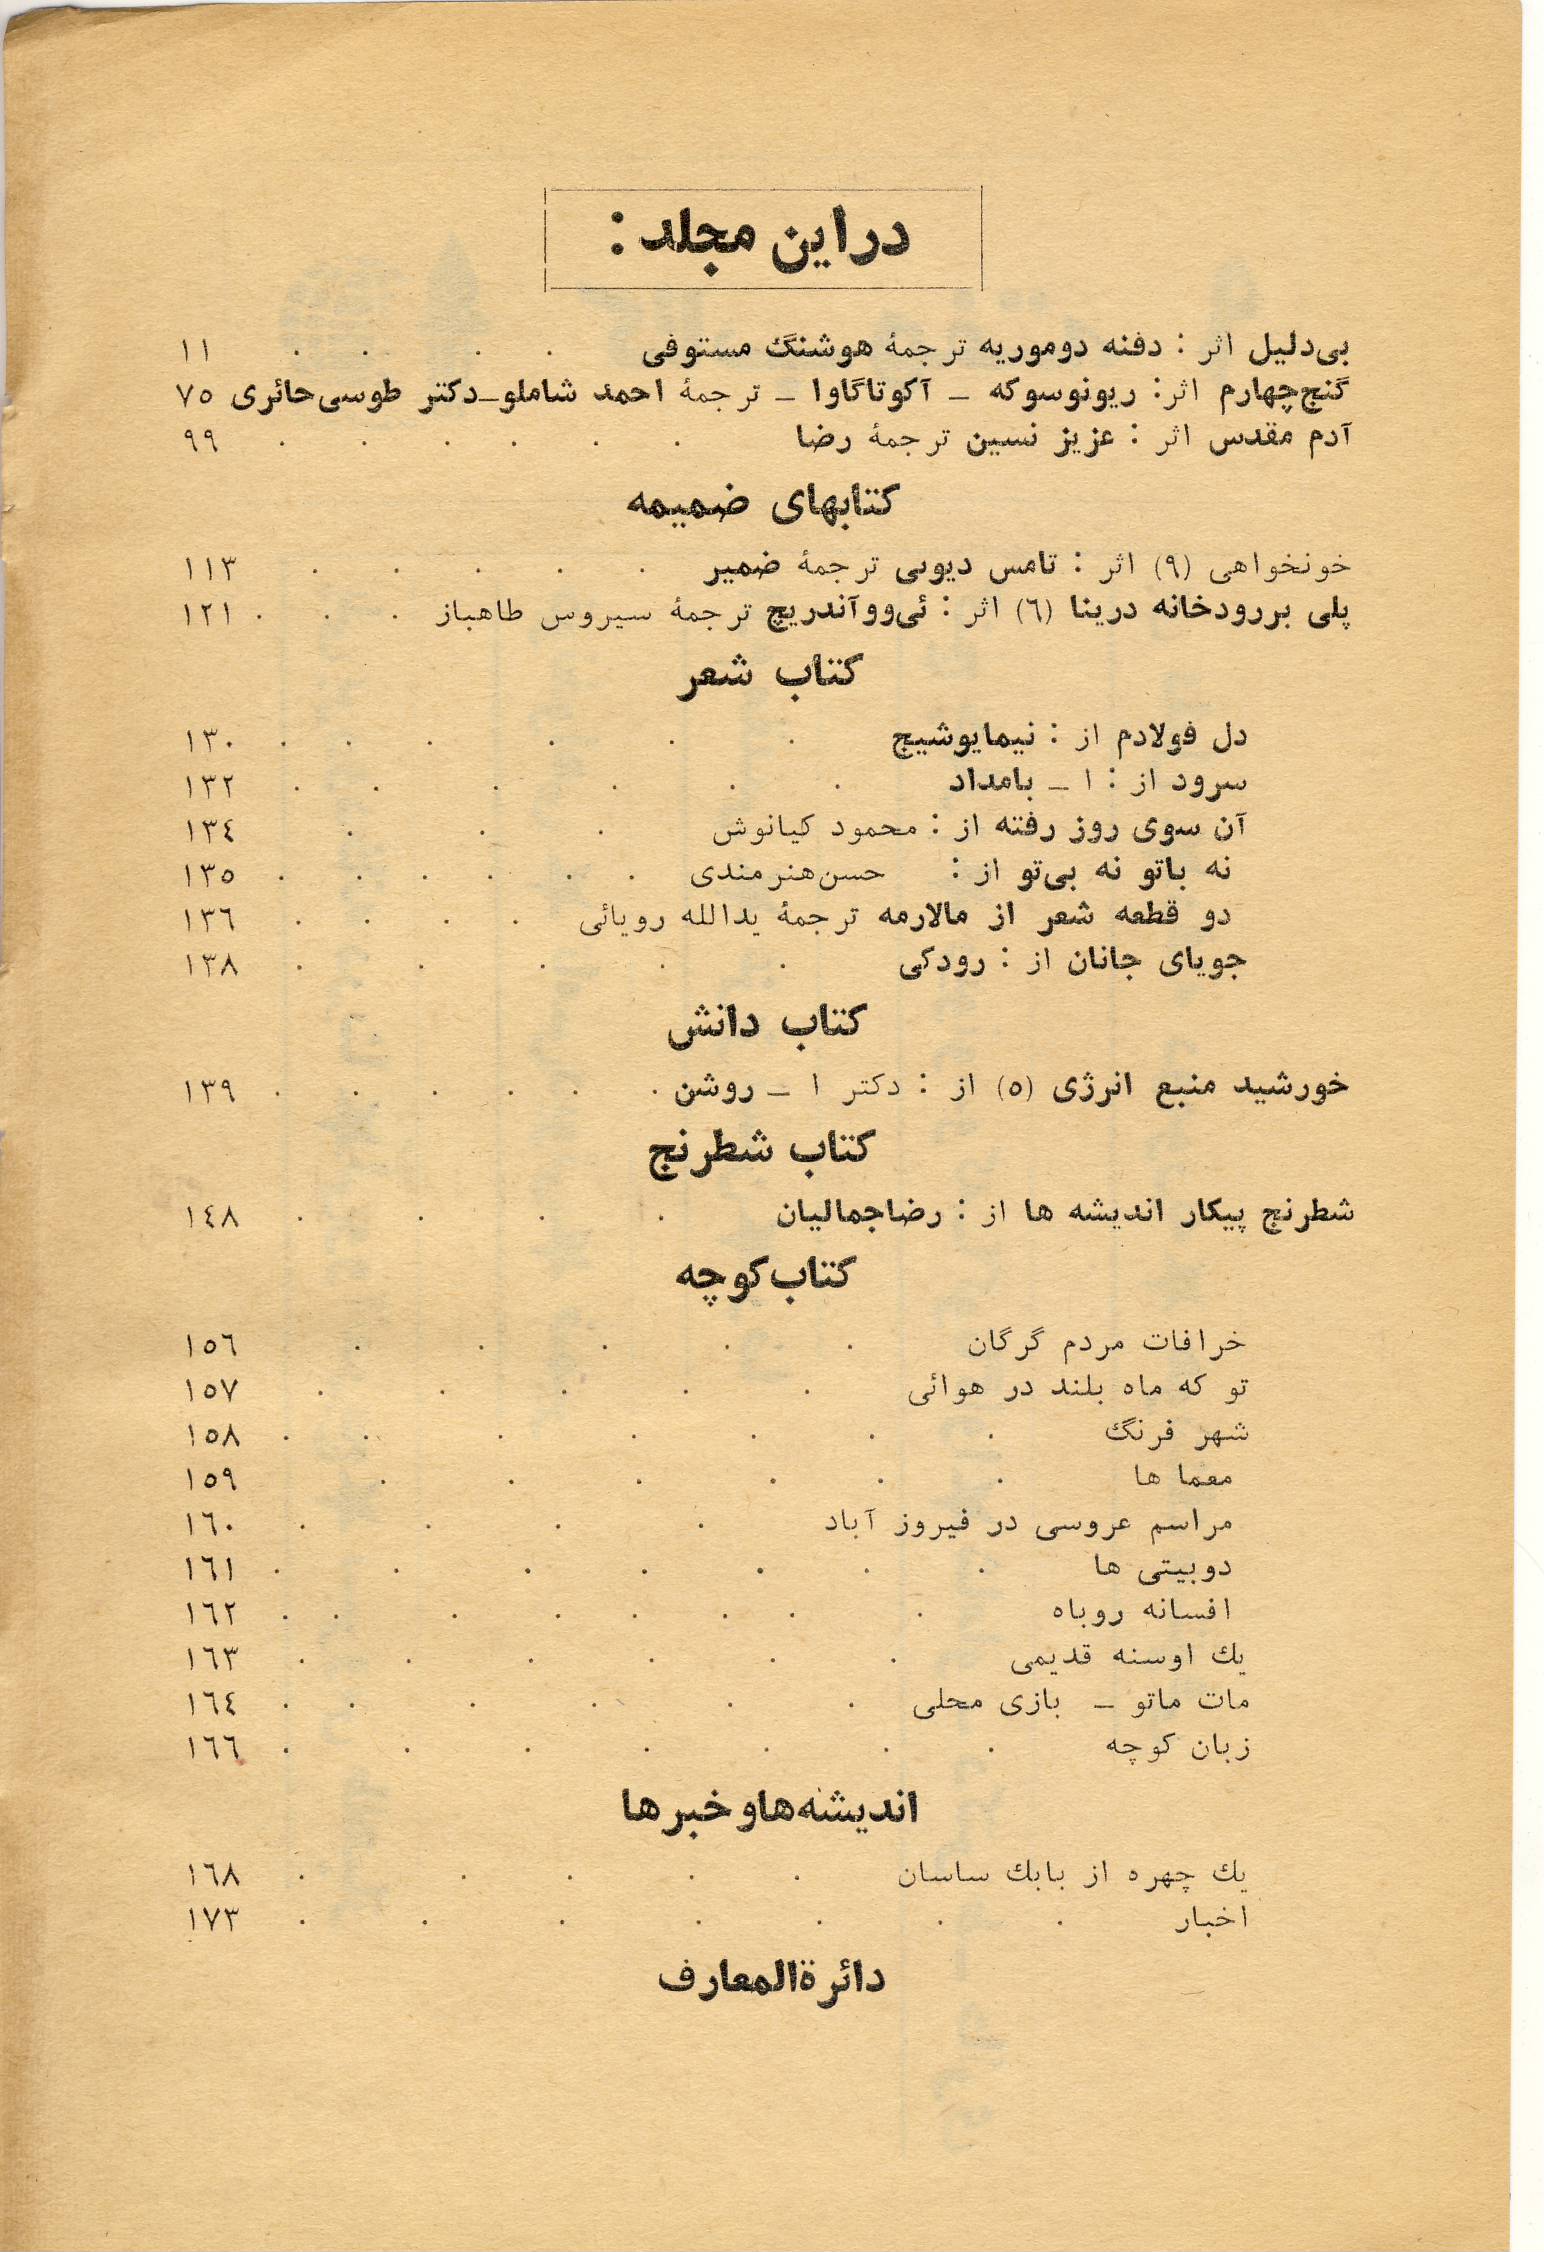 در این مجلد :
بی‌دلیل اثر : دفنه دوموریه ترجمهٔ هوشنگ مستوفی . . . . ۱۱
گنج‌چهارم اثر: ریونوسوکه ـ آکوتاگاوا ـ ترجمهٔ احمد شاملو ـ دکتر طوسی‌حائری ۷۵
آدم مقدس اثر : عزیز نسین ترجمهٔ رضا . . . . . . ۹۹
کتابهای ضمیمه
خونخواهی (۹) اثر : تامس دیویی ترجمهٔ ضمیر . . . . . ۱۱۳
پلی بررودخانه درینا (٦) اثر : ئی‌ووآندریچ ترجمهٔ سیروس طاهباز . . . ۱۲۱
کتاب شعر
دل فولادم از : نیمایوشیج . . . . . . ۱۳۰
سرود از : ا ـ بامداد . . . . . . ۱۳۲
آن سوی روز رفته از : محمود کیانوش . . . ۱۳٤
نه باتو نه بی‌تو از : حسن‌هنرمندی . . . . . . ۱۳۵
دو قطعه شعر از مالارمه ترجمهٔ یدالله رویائی . . . . ۱۳٦
جویای جانان از : رودکی . . . . . ۱۳۸
کتاب دانش
خورشید منبع انرژی (۵) از : دکتر ا ـ روشن . . . . . . ۱۳۹
کتاب شطرنج
شطرنج پیکار اندیشه ها از : رضاجمالیان . . . . ۱٤۸
کتاب کوچه
خرافات مردم گرگان . . . . . ۱۵٦
تو که ماه بلند در هوائی . . . . . ۱۵۷
شهر فرنگ . . . . . . . ۱۵۸
معما ها . . . . . . ۱۵۹
مراسم عروسی در فیروز آباد . . . . ۱٦۰
دوبیتی ها . . . . . . . ۱٦۱
افسانه روباه . . . . . . . . ۱٦۲
یك اوسنه قدیمی . . . . . . ۱٦۳
مات ماتو ـ بازی محلی . . . . . . ۱٦٤
زبان کوچه . . . . . . . ۱٦٦
اندیشه‌ها و خبرها
یك چهره از بابك ساسان . . . . . ۱٦۸
اخبار . . . . . . . ۱۷۳
دائرة‌المعارف